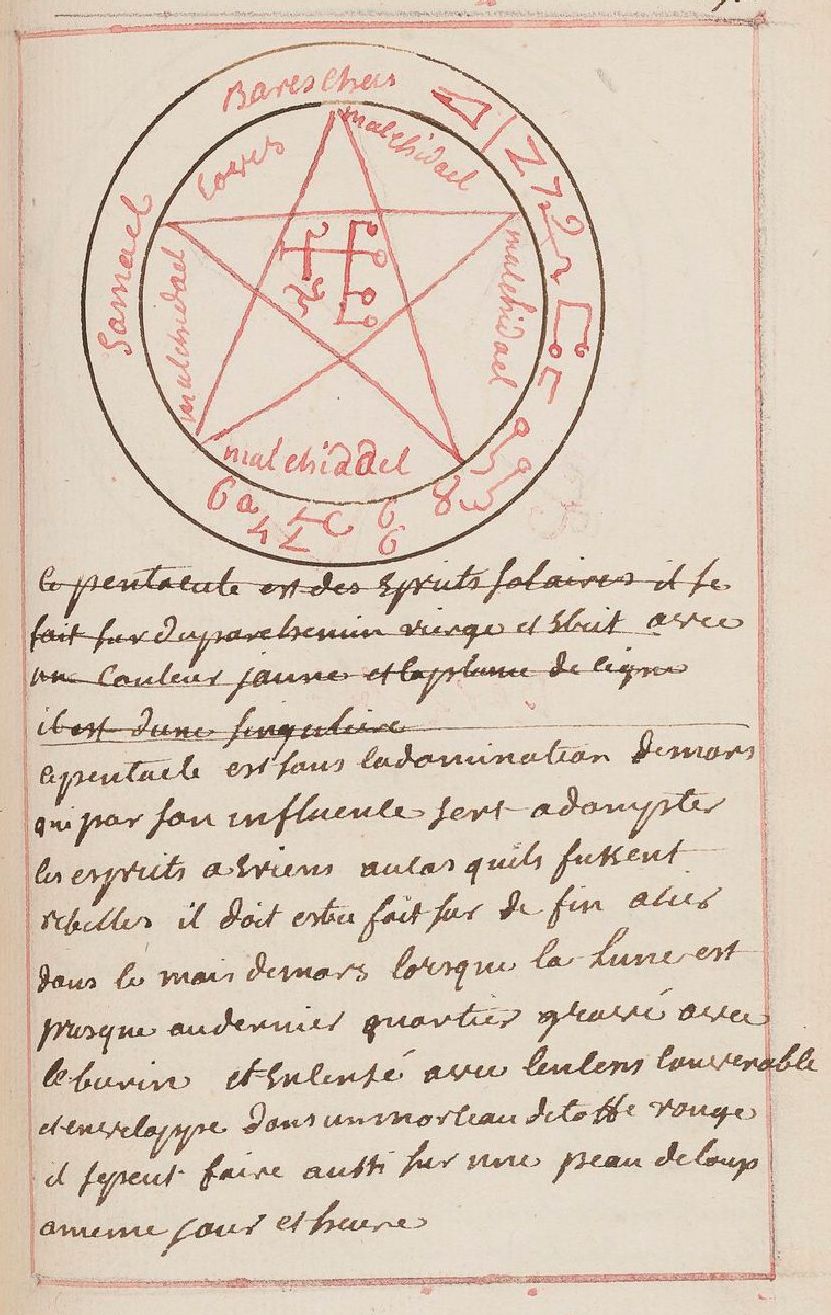 Bareschas
malchidael
Samael
malchidael
malchidael
malchidael
le pentacule est des Esprits solaires il se
fait sur du parchemin vierge et Ecrit avec
une couleur jaune et la plume de cigne
il est dune singuliere
le pentacle est sous la domination de mars
qui par son influence sert a dompter
les esprits a Eriens au cas quils fussent
rebelles il doit estre fait sur de fin acier
dans le mois de mars lorsque la lune est
presque au dernier quartier gravé avec
le burin et Enlensé avec lenlens convenable
et enveloppe dans un morceau detoffe rouge
il se peut faire aussi sur une peau de loup
a meme jour et heure